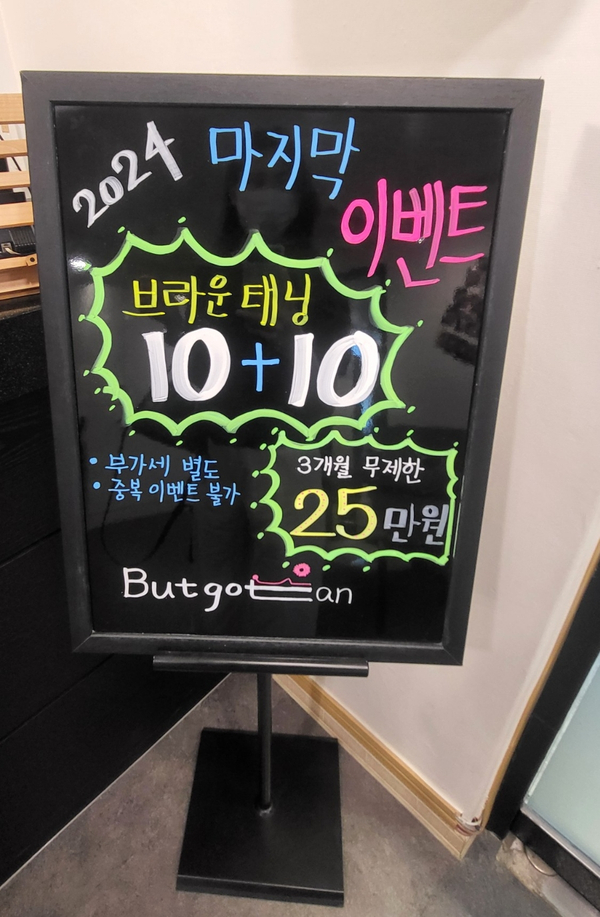 2024 마지막
이벤트
브라운태닝
10+10
• 부가세 별도
• 중복 이벤트 불가
3개월 무제한
25만원
Butgot an